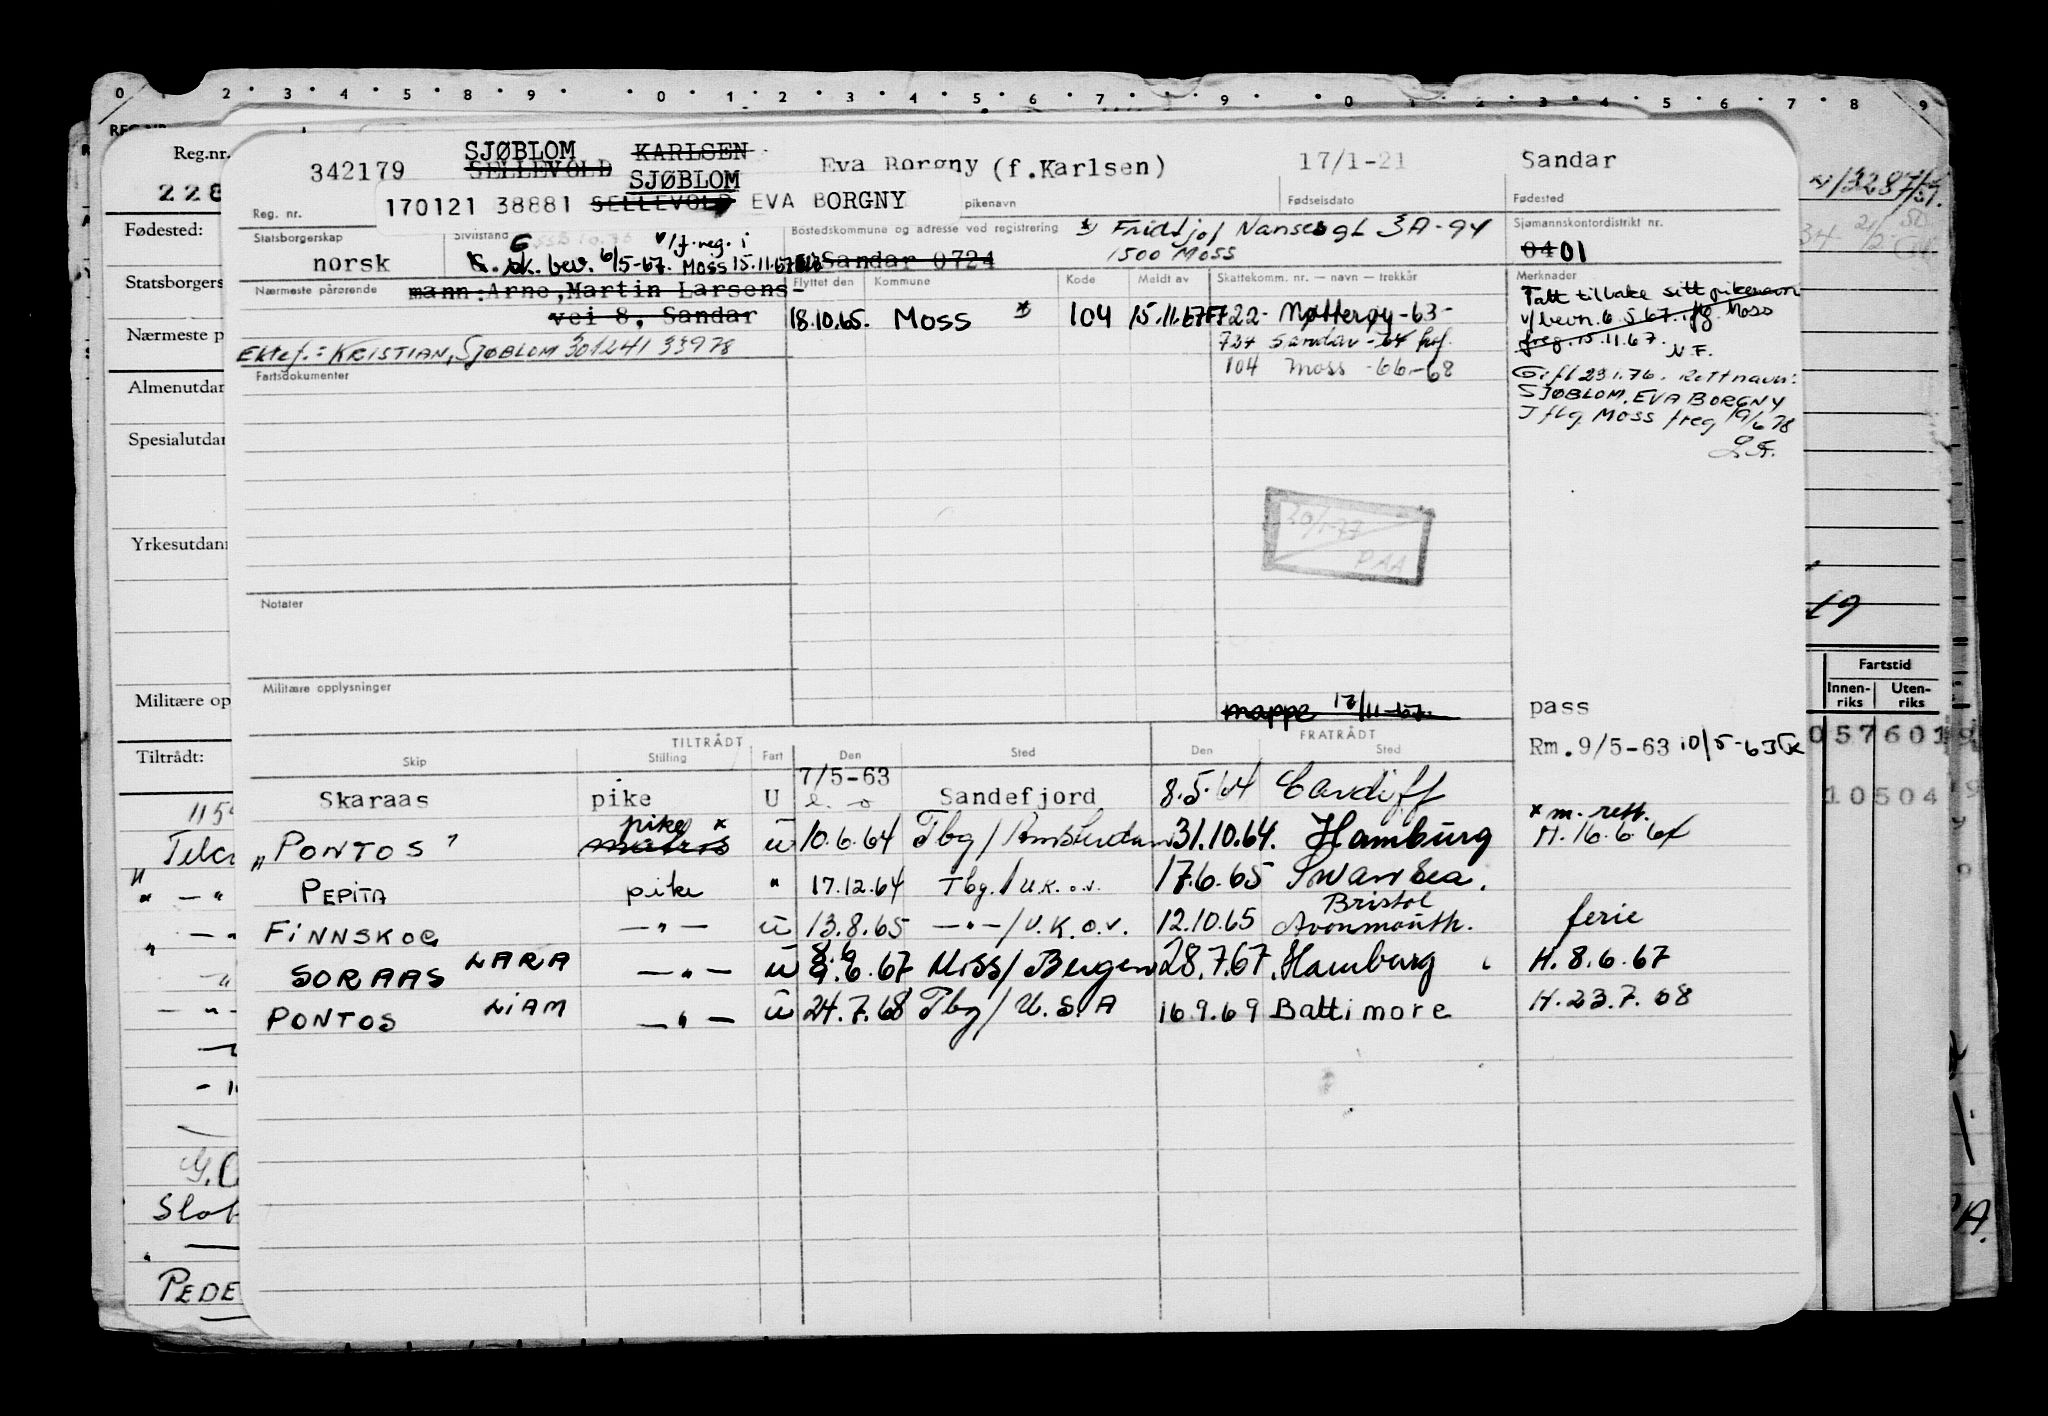 0 1 2 3 4 5 8 9 0 1 2 3 4 5 6 7 9 0 1 2 3 4 5 6 7 8 9
REG.NR.
Reg.nr.
228
Fødested:
Statsborgers
Nærmeste p
Almenutdan
Spesialutdan
Yrkesutdann
Militære op
Tiltrådt:
Slot
PEDE
13287/51.
19
Fartstid
Innen-riks Uten-riks
057601
10504
342179 SJØBLOM KARLSEN Eva Borgny (f.Karlsen) 17/1-21 Sandar
SELLEVOLD SJØBLOM
170121 38881 SELLEVOLD EVA BORGNY
Reg. nr. pikenavn Fødselsdato Fødested
Statsborgerskap Sivilstand Bostedskommune og adresse ved registrering Sjømannskontordistrikt nr.
G v/f.reg. i * Fridtjof Nansesgt 3A-94
norsk bev. 6/5-67. Moss 15.11.67 Sandar 0724 1500 Moss 04 01
Nærmeste pårørende mann: Arne, Martin Larsens-
vei 8, Sandar
Ektef.: KRISTIAN, SJØBLOM 301241 33978
Flyttet den Kommune Kode Meldt av Skattekomm. nr. — navn — trekkår Merknader
18.10.65. Moss * 104 15.11.67 FF 722- Nøtterøy -63-
724 Sandar -64
104 Moss -66-68
Tatt tilbake sitt pikenavn
v/bevn. 6.5.67. ifg. Moss
freg. 15.11.67. N.F.
Gift 23 1.76. Rettnavn:
SJØBLOM, EVA BORGNY
Iflg Moss freg 19/6 78
Fartsdokumenter
20/1-77
PAA
Notater
Militære opplysninger
mappe 17/11-67.
pass
Rm. 9/5-63 10/5-63
TILTRÅDT FRATRÅDT
Skip Stilling Fart Den Sted Den Sted
Skaraas pike U 7/5-63 Sandefjord 8.5.64 Cardiff
" PONTOS " pike * matros u 10.6.64 Tbg/Amsterdam 31.10.64. Hamburg * m. rett. H. 16.6.64
PEPITA pike " 17.12.64 Tbg./U.K. o.v. 17.6.65 Swansea.
FINNSKOG —"— u 13.8.65 —"—/U.K.O.V. 12.10.65 Bristol Avonmouth. ferie
SORAAS LARA —"— u 9.6.67 Miss/Bergen 28.7.67. Hamburg H. 8.6.67
PONTOS LIAM —"— u 24.7.68 Tbg/U.S.A 16.9.69 Baltimore H. 23.7.68